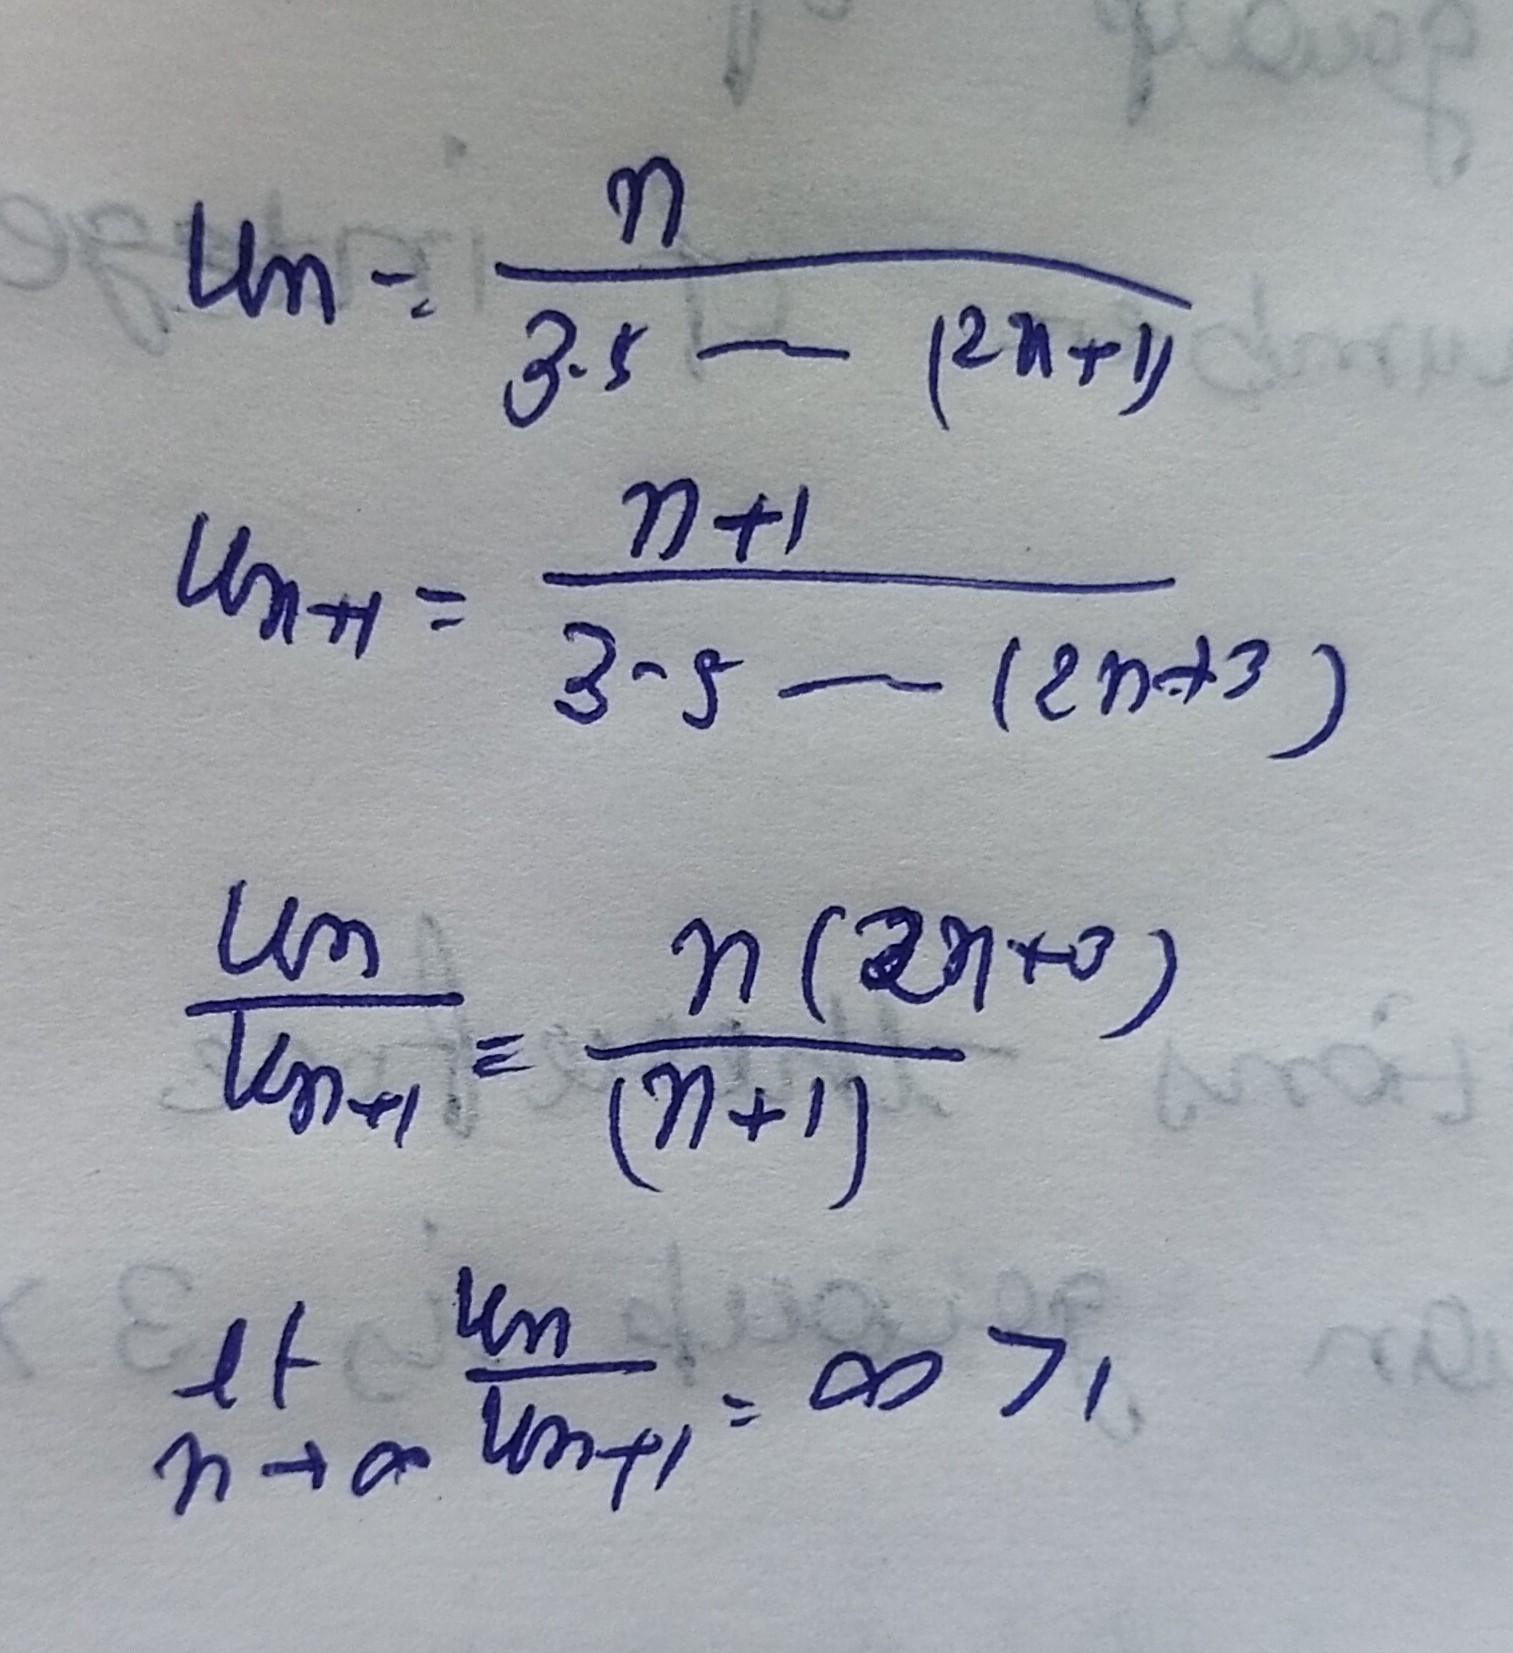 Un = n / 3.5 — (2n+1)
Un+1 = n+1 / 3-5 — (2n+3)
Un / Un+1 = n(2n+3) / (n+1)
lt n→∞ Un / Un+1 = ∞ > 1